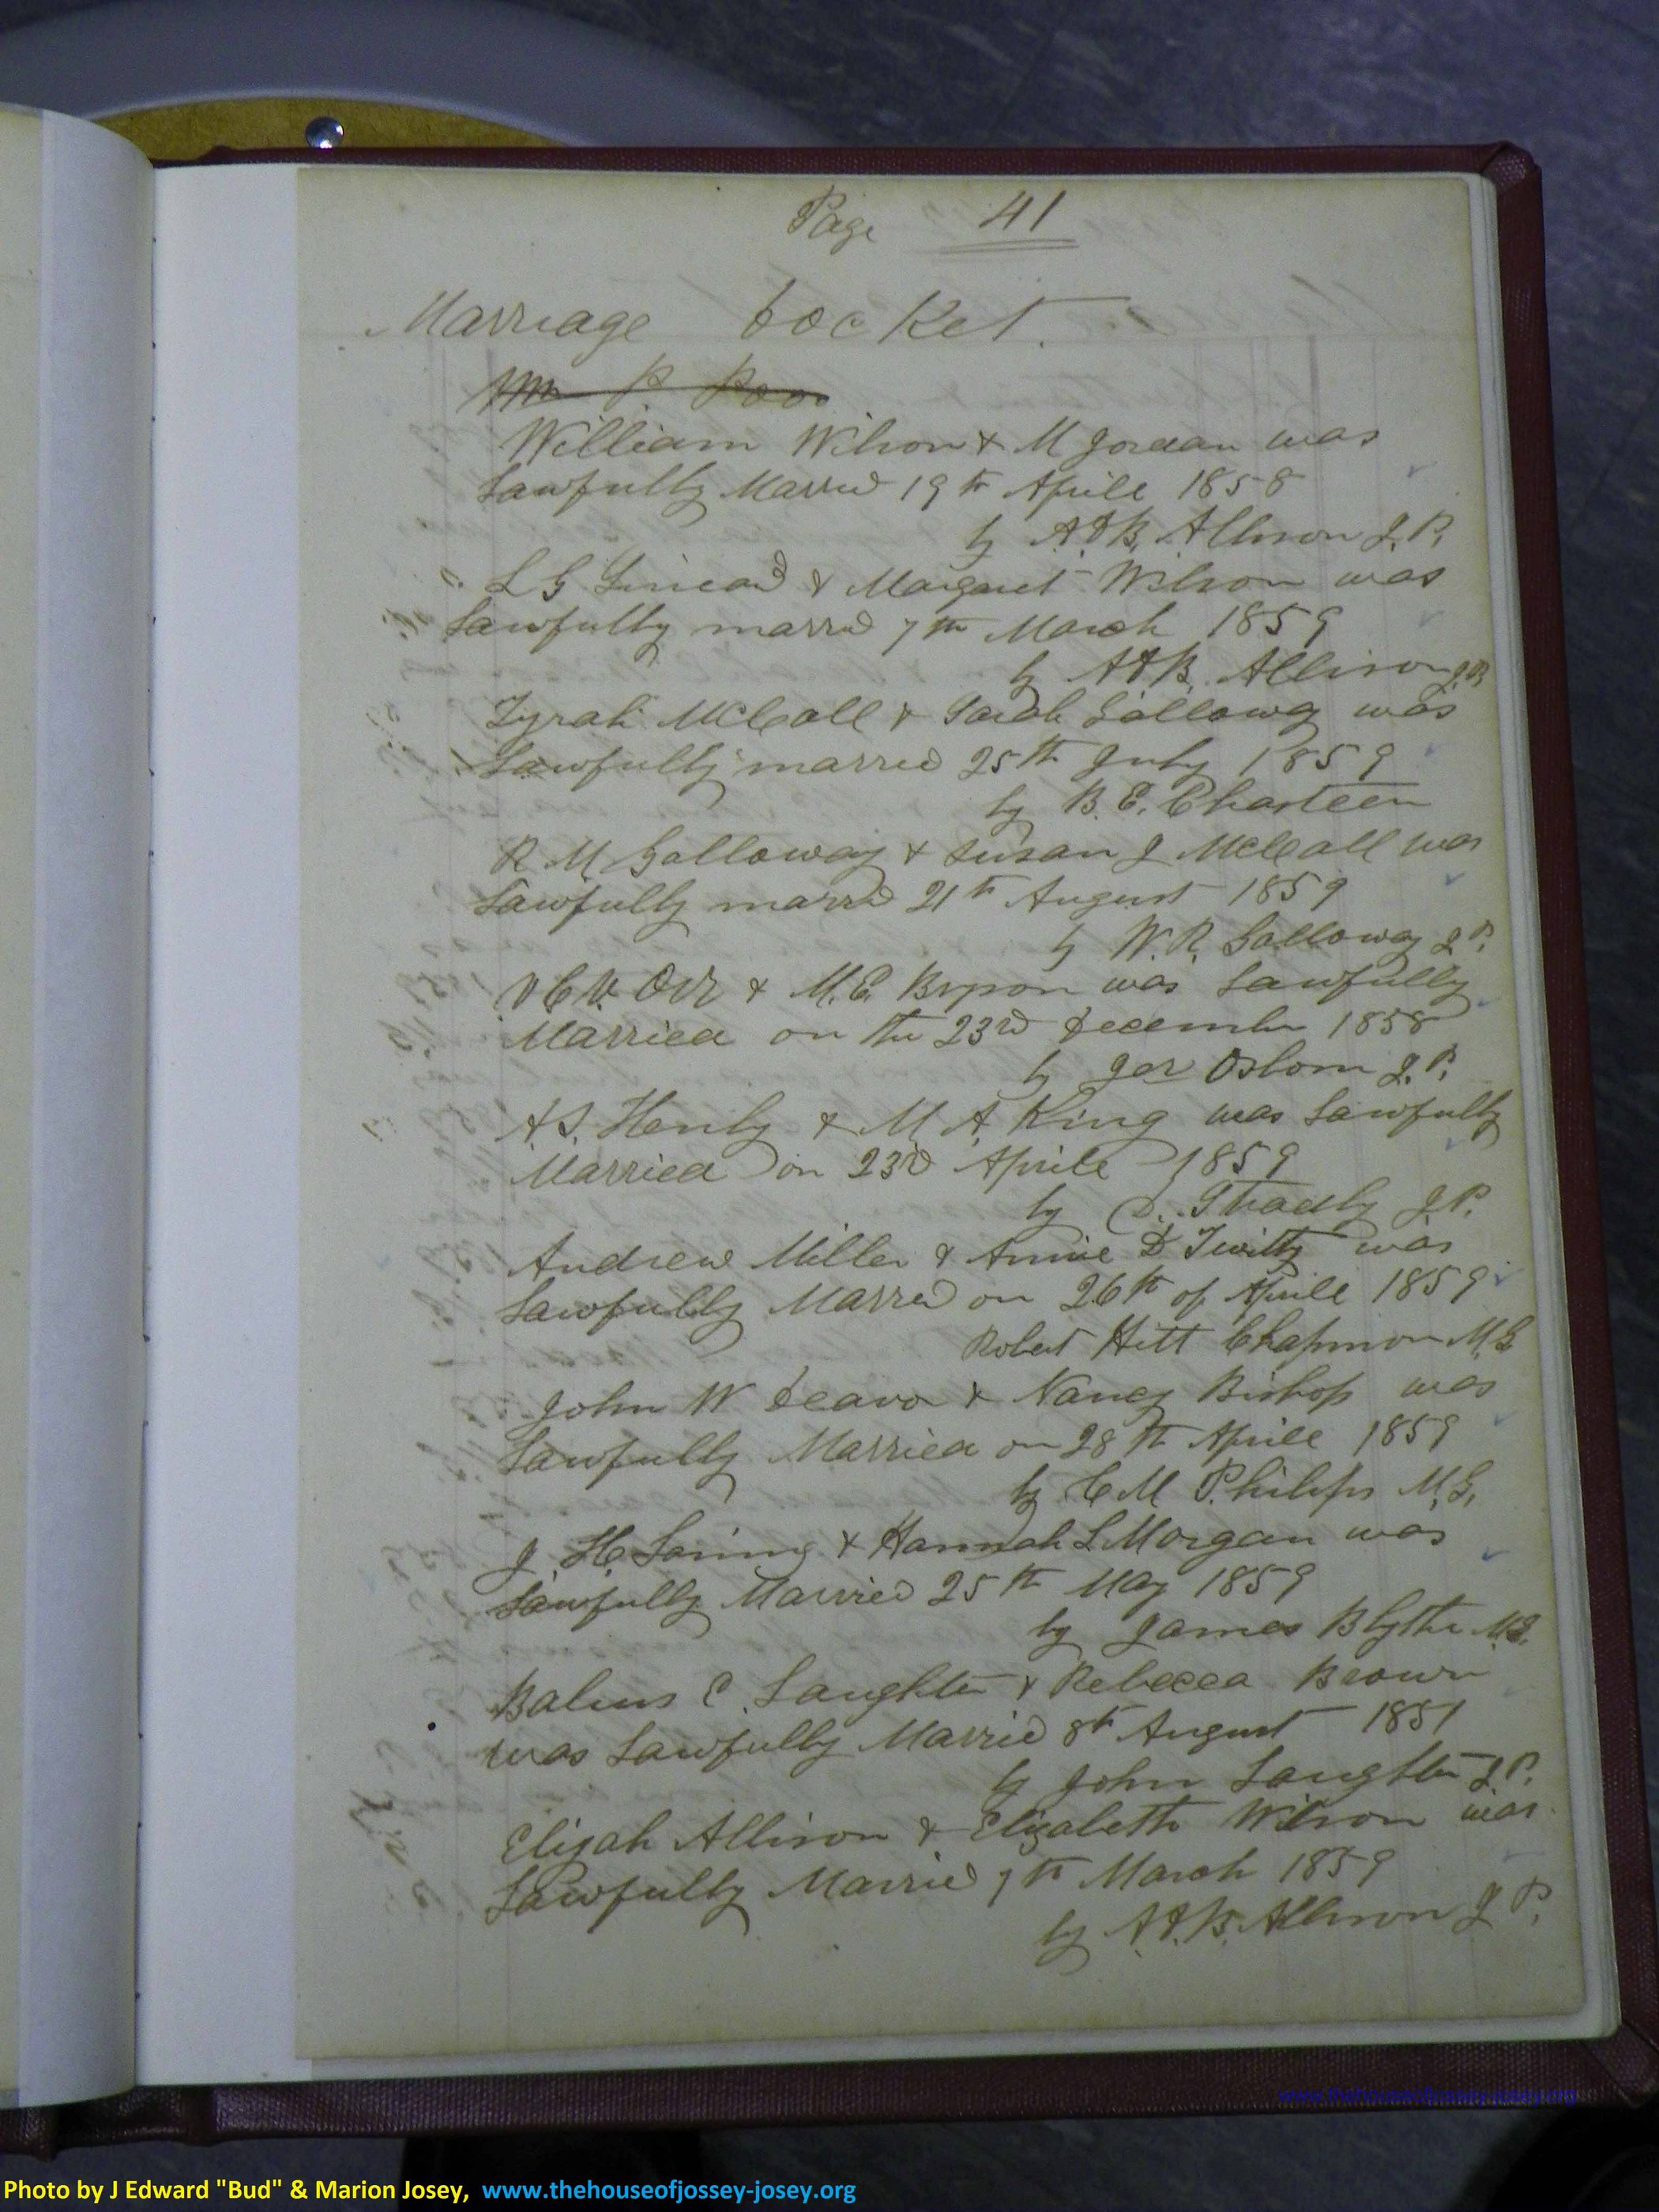 Page 41
Marriage Docket.
Wm R Poor
William Wilson & M Jordan was
Lawfully Married 19th Aprile 1858
by A.J.B. Allison J.P.
L G Lincard & Margaret Wilson was
Lawfully married 7th March 1859
by AJB. Allison JP
Zyrah McCall & Sarah Galloway was
Lawfully married 25th July 1859
by B.E. Chasteen
R M Galloway & Susan J McCall was
Lawfully marrid 21th August 1859
by W.R. Galloway J P.
V C V. Orr & M.E. Bryson was Lawfully
Married on the 23rd December 1858
by Jer Osborn J.P.
A.S. Henly & M A King was Lawfully
Married on 23rd Aprile 1859
by D. Stradly J P.
Andrew Miller & Annie D Twitty was
Lawfully Married on 26th of Aprile 1859
Robert Hett Chapmon M.G
John W Deaver & Nancy Bishop was
Lawfully Married on 28th Aprile 1859
by C M Philips M.G.
J. H. Loring & Hannah L Morgan was
Lawfully Married 25th May 1859
by James Blythe M.G.
Balus C. Laughter & Rebecca Brown
was Lawfully Married 8th August 1851
by John Laughter J P.
Elijah Allison & Elizabeth Wilson was
Lawfully Married 7th March 1859
by A.J.B. Allison J P.
www.thehouseofjossey-josey.org
Photo by J Edward "Bud" & Marion Josey, www.thehouseofjossey-josey.org